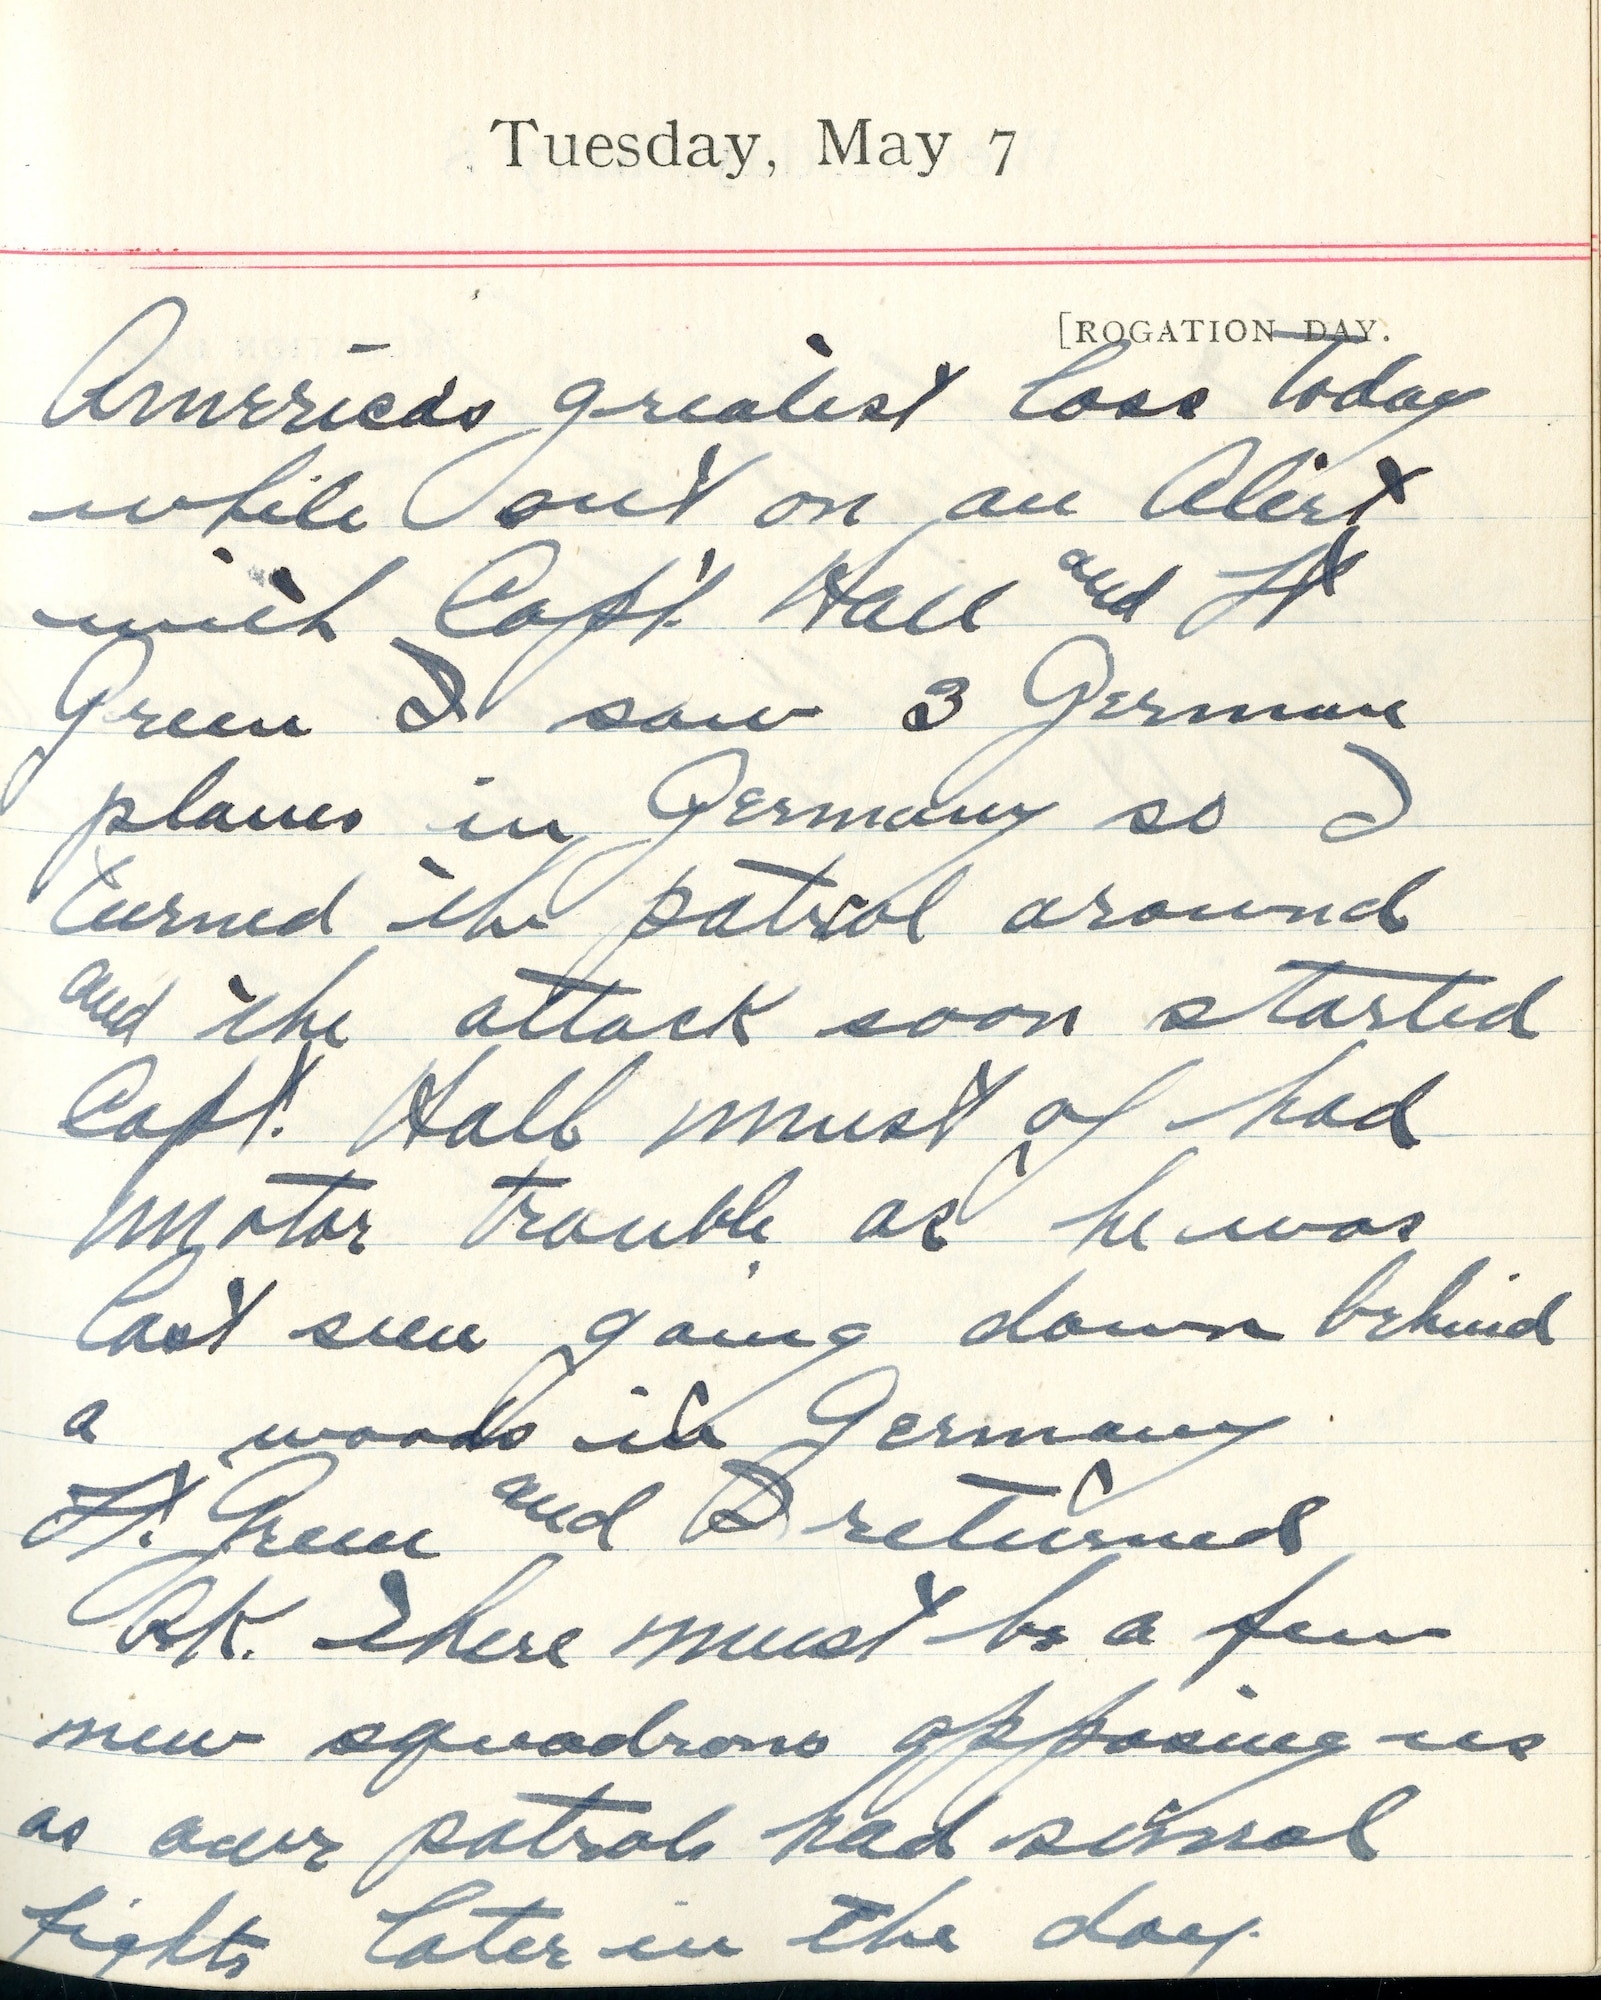 Tuesday, May 7
[ROGATION DAY.
Americas greatest loss today
while out on an Alert
with Capt. Hall and Lt
Green I saw 3 German
planes in Germany so I
turned the patrol around
and the attack soon started
Capt. Hall must of had
motor trouble as he was
last seen going down behind
a woods in Germany.
Lt. Green and I returned
OK. There must be a few
new squadrons opposing us
as our patrols had several
fights later in the day.